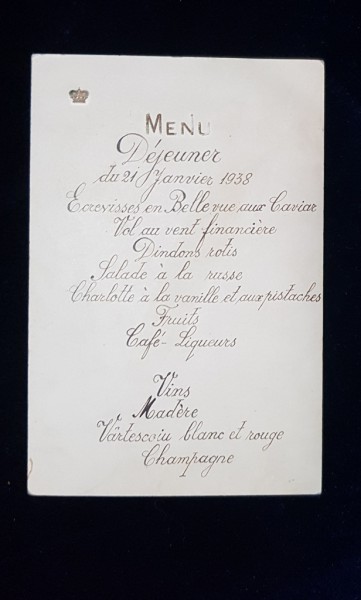 MENU
Déjeuner
du 21 Janvier 1938
Ecrevisses en Bellevue aux Caviar
Vol au vent financière
Dindons rotis
Salade à la russe
Charlotte à la vanille et aux pistaches
Fruits
Café - Liqueurs
Vins
Madère
Värtescoiu blanc et rouge
Champagne